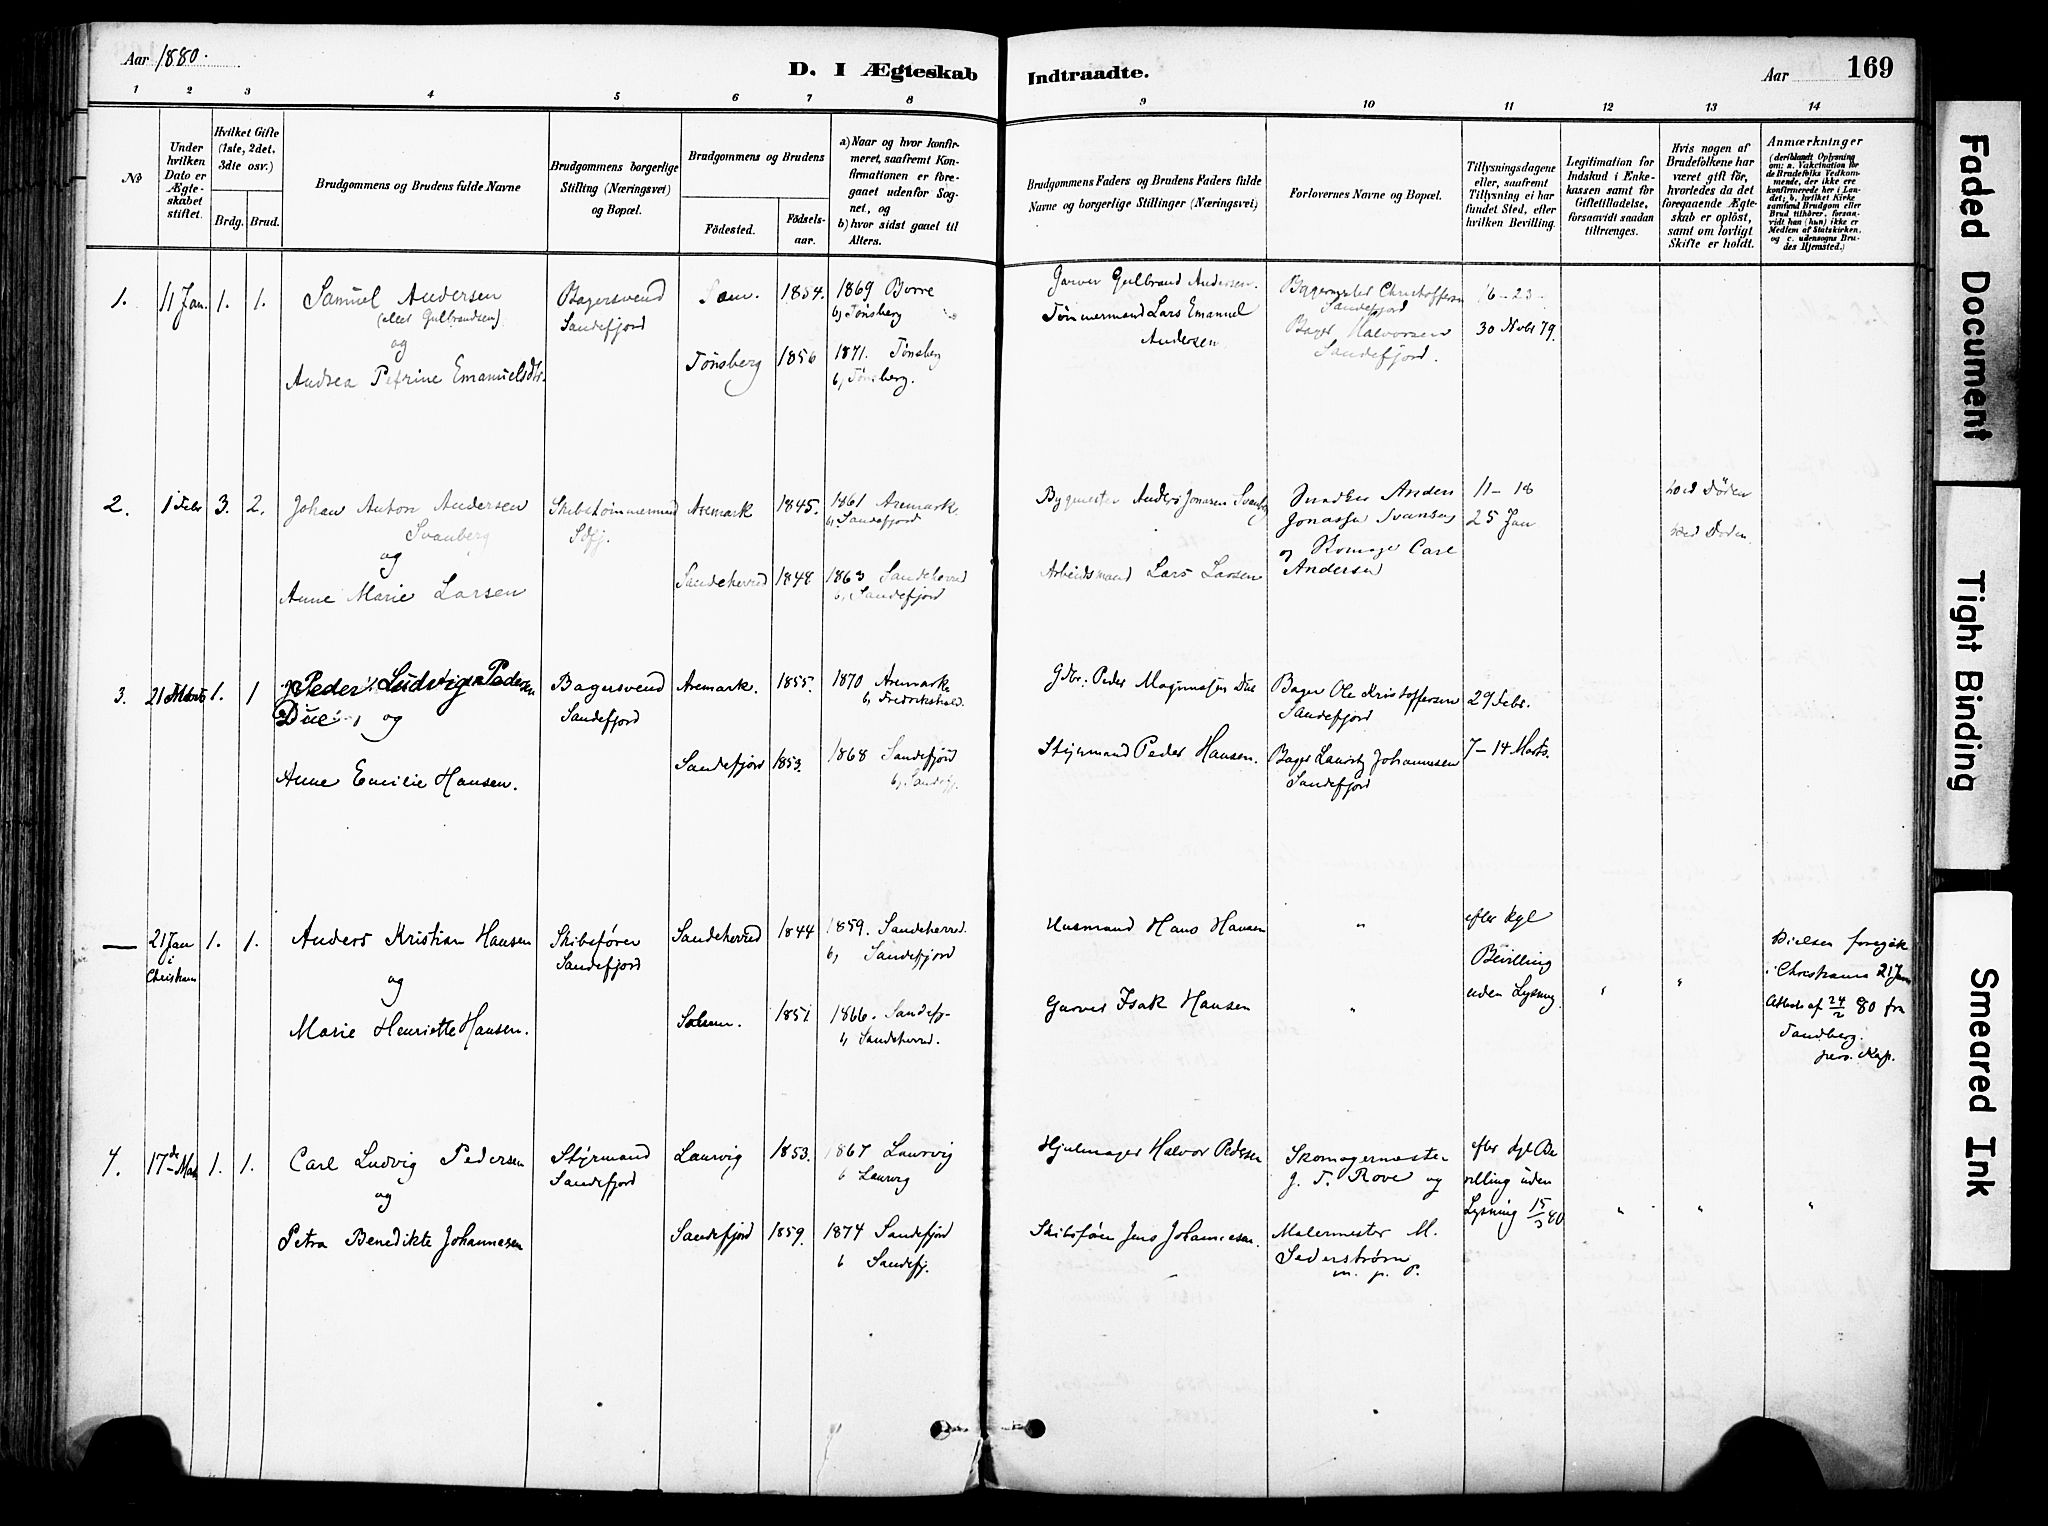 Aar 1880.
D. I Ægteskab Indtraadte.
Aar 169
1 2 3 4 5 6 7 8 9 10 11 12 13 14
No
Under hvilken Dato er Ægteskabet stiftet.
Hvilket Gifte (1ste, 2det, 3die osv.)
Brdg. Brud.
Brudgommens og Brudens fulde Navne
Brudgommens borgerlige Stilling (Næringsvei) og Bopæl.
Brudgommens og Brudens
Fødested. Fødselsaar.
a) Naar og hvor konfirmeret, saafremt Konfirmationen er foregaaet udenfor Sognet, og
b) hvor sidst gaaet til Alters.
Brudgommens Faders og Brudens Faders fulde Navne og borgerlige Stillinger (Næringsvei)
Forlovernes Navne og Bopæl.
Tillysningsdagene eller, saafremt Tillysning ei har fundet Sted, efter hvilken Bevilling.
Legitimation for Indskud i Enkekassen samt for Giftetilladelse, forsaavidt saadan tiltrænges.
Hvis nogen af Brudefolkene har været gift før, hvorledes da det foregaaende Ægteskab er opløst, samt om lovligt Skifte er holdt.
Anmærkninger (deriblandt Oplysning om: a. Vakcination for de Brudefolks Vedkommende, der ikke ere konfirmerede her i Landet; b. hvilket Kirkesamfund Brudgom eller Brud tilhører, forsaavidt han (hun) ikke er Medlem af Statskirken, og c. udensogns Brudes Hjemsted.)
1. 11 Jan. 1. 1.
Samuel Andersen
(eller Gulbrandsen)
og
Andrea Petrine Emanuelsdtr.
Bagersvend
Sandefjord
1854.
1869 Borre
b, Tønsberg
Tønsberg 1856
1871. Tønsberg
b, Tønsberg.
Garver Gulbrand Andersen.
Tømmermand Lars Emanuel
Andersen
Bagermester Christoffersen
Sandefjord
Bager Halvorsen
Sandefjord.
16-23-
30 Novbr 79.
2. 1 Febr 3. 2.
Johan Anton Andersen
Svanberg
og
Anne Marie Larsen
Skibstømmermand
Sdfj.
Aremark 1845.
1861 Aremark
b, Sandefjord
Sandeherred 1848
1863 Sandeherred
b, Sandefjord
Bygmester Anders Jonasen Svanberg
Arbeidsmand Lars Larsen
Snedker Anders
Jonassen Svansen
og Skomager Carl
Andersen
11-18
25 Jan
ved Døden
ved Døden.
3. 21 Marts 1. 1
Peder Ludvig Pedersen
Due og
Anne Emilie Hansen.
Bagersvend
Sandefjord
Aremark. 1855.
1870 Aremark
b, Fredrikshald.
Sandefjord 1853.
1868 Sandefjord
b, Sandefj.
Gdbr: Peder Magnussen Due
Styrmand Peder Hansen.
Bager Ole Kristoffersen
Sandefjord
Bager Lauritz Johannesen
Sandefjord
29 Febr.
7-14 Marts.
— 21 Jan
i
Christiania
1. 1.
Anders Kristian Hansen
og
Marie Henriette Hansen.
Skibsfører
Sandefjord
Sandeherred 1844
1859. Sandeherred.
b, Sandefjord
Solum. 1851
1866. Sandefj-
b, Sandeherred.
Husmand Hans Hansen
Garver Isak Hansen
"
"
efter kgl
Bevilling
uden Lysning.
"
"
Vielsen foregik
i Christiania 21 Jan
Attest af 24/2 80 fra
Sandberg.
pers. Kap.
4. 17de Mai 1. 1.
Carl Ludvig Pedersen
og
Petra Benedikte Johannesen
Styrmand
Sandefjord
Laurvig 1853.
1867 Laurvig
b Laurvig
Sandefjord 1859.
1874 Sandefjord
b Sandefj.
Hjulmager Halvor Pedersen
Skibsfører Jens Johannesen.
Skomagermester
J. T. Rove og
Malermester M.
Sederstrøm
m. p. P.
efter kgl Be
villing uden
Lysning 15/3 80
"
"
"
Faded Document
Tight Binding
Smeared Ink